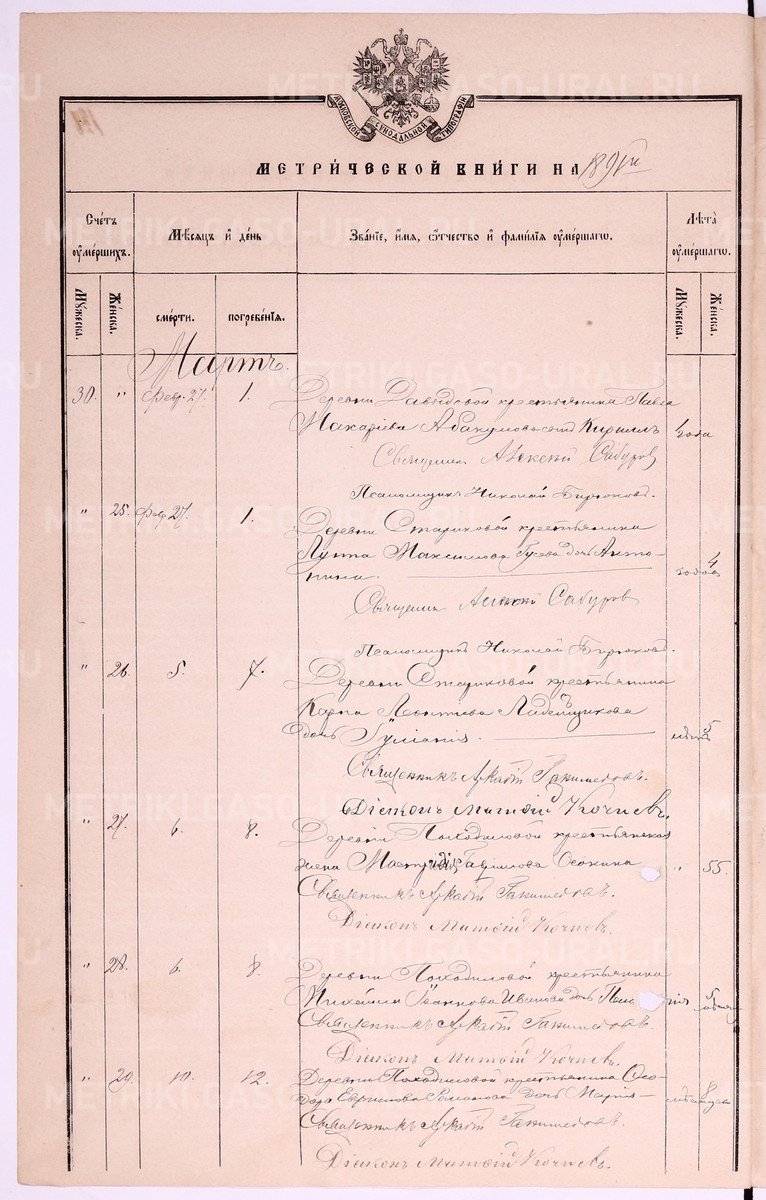 МОСКОВСКОЙ СУНОДАЛЬНОЙ ТИПОГРАФІИ
МЕТРИ́ЧЕСКОЙ КНИ́ГИ НА 189
Сче́тъ ѹме́ршихъ.
Мѣ́сяцъ и де́нь
Зва́ніе, и́мя, ѻ҆́тчество и фами́лія ѹме́ршагѡ.
Лѣ́та ѹме́ршагѡ.
Мꙋ́жеска.
Же́нска.
сме́рти.
погребе́нія.
Мꙋ́жеска.
Же́нска.
Мартъ.
30. " Февр. 27. 1. Деревни Давыдовой крестьянина Павла
Макаріева Абакумова сынъ Кириллъ года
Священникъ Алексій Сабуровъ
Псаломщикъ Николай Бирюковъ.
" 25. Февр. 27. 1. Деревни Стариковой крестьянина
Луппа Максимова Гусева дочь Анто-
нина. 4 годовъ
Священникъ Алексій Сабуровъ
Псаломщикъ Николай Бирюковъ.
" 26. 5. 7. Деревни Стариковой крестьянина
Карпа Леонтіева
дочь Іуліанія. 5
Священникъ Аркадій Ганимедовъ.
Діаконъ Матѳій Кочневъ.
" 27. 6. 8. Деревни Походиловой крестьянская
жена Гаврилова Осокина " 55.
Священникъ Аркадій Ганимедовъ.
Діаконъ Матѳій Кочневъ.
" 28. 6. 8. Деревни Походиловой крестьянина
Михаила Іоаннова Иванова дочь 5
Священникъ Аркадій Ганимедовъ.
Діаконъ Матѳій Кочневъ.
" 29. 10. 12. Деревни Походиловой крестьянина Ѳео-
дора Романова дочь Марія 8 мѣсяцевъ
Священникъ Аркадій Ганимедовъ.
Діаконъ Матѳій Кочневъ.
METRIKI.GASO-URAL.RU